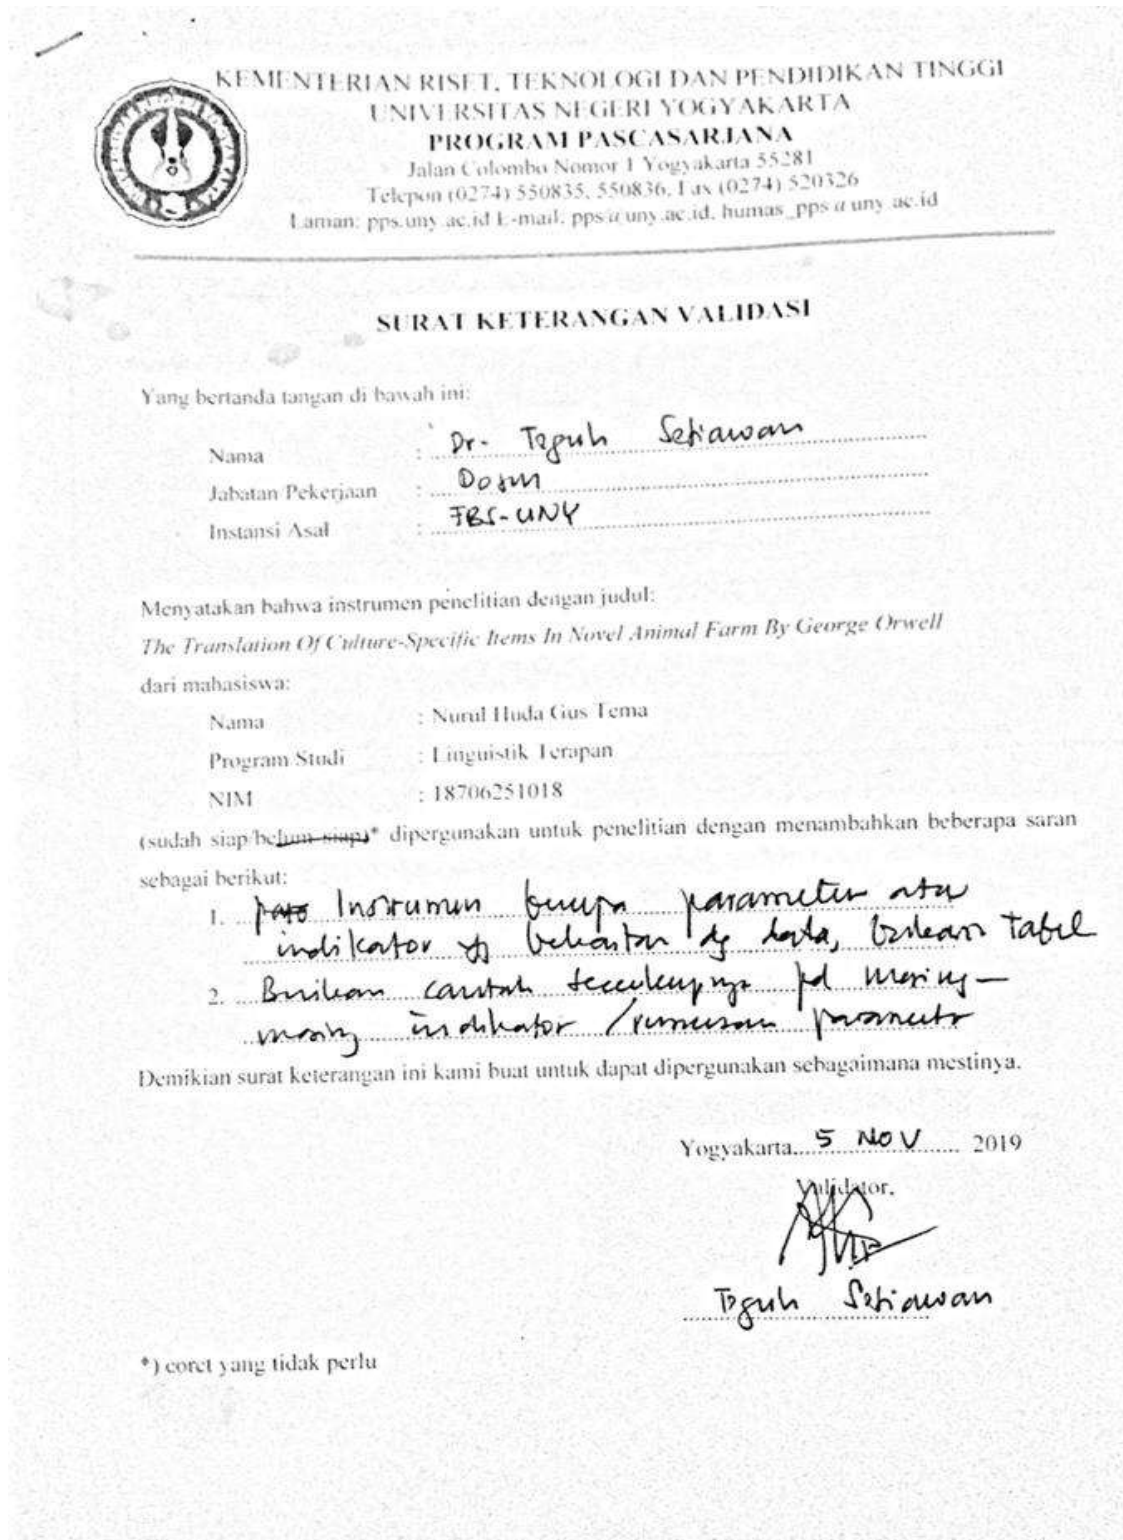 KEMENTERIAN RISET, TEKNOLOGI DAN PENDIDIKAN TINGGI
UNIVERSITAS NEGERI YOGYAKARTA
PROGRAM PASCASARJANA
Jalan Colombo Nomor 1 Yogyakarta 55281
Telepon (0274) 550835, 550836, Fax (0274) 520326
Laman: pps.uny.ac.id E-mail: pps@uny.ac.id, humas_pps@uny.ac.id
SURAT KETERANGAN VALIDASI
Yang bertanda tangan di bawah ini:
Nama : Dr. Teguh Setiawan
Jabatan Pekerjaan : Dosen
Instansi Asal : FBS-UNY
Menyatakan bahwa instrumen penelitian dengan judul:
The Translation Of Culture-Specific Items In Novel Animal Farm By George Orwell
dari mahasiswa:
Nama : Nurul Huda Gus Tema
Program Studi : Linguistik Terapan
NIM : 18706251018
(sudah siap/belum siap)* dipergunakan untuk penelitian dengan menambahkan beberapa saran
sebagai berikut:
1. Instrumen berupa parameter atau
indikator yg berkaitan dg data, berikan Tabel
2. Berikan contoh secukupnya pd masing-
masing indikator / rumusan parameter
Demikian surat keterangan ini kami buat untuk dapat dipergunakan sebagaimana mestinya.
Yogyakarta, 5 NOV 2019
Validator,
Teguh Setiawan
*) coret yang tidak perlu